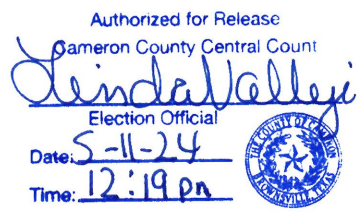 Authorized for Release
Cameron County Central Count
Linda Vallejo
Election Official
Date: 5-11-24
Time: 12:19 pm
THE COUNTY OF CAMERON
BROWNSVILLE, TEXAS